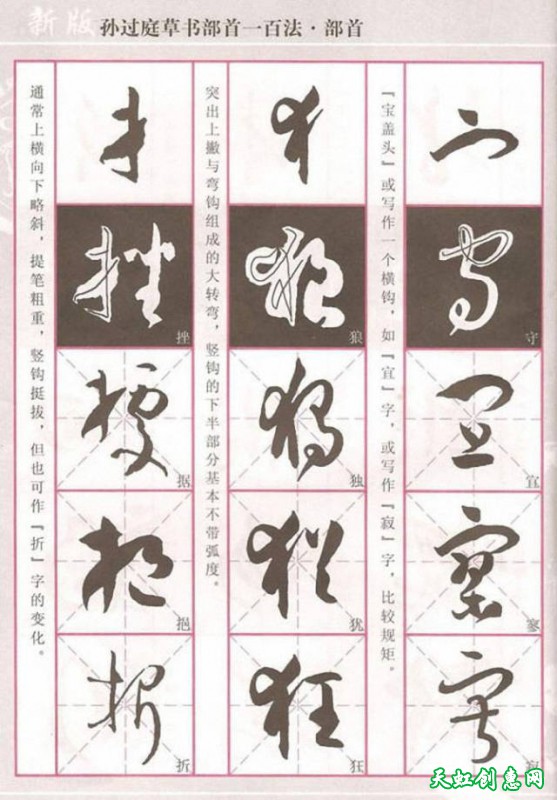 新版 孙过庭草书部首一百法·部首
『宝盖头』或写作一个横钩，如『宜』字，或写作『寂』字，比较规矩。
守
宜
寥
寂
突出上撇与弯钩组成的大转弯，竖钩的下半部分基本不带弧度。
狼
独
犹
狂
通常上横向下略斜，提笔粗重，竖钩挺拔，但也可作『折』字的变化。
挫
据
挹
折
天虹创意网